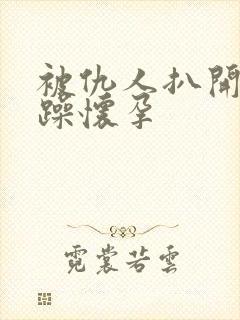 被仇人扒開
躁懷孕
霓裳若雲